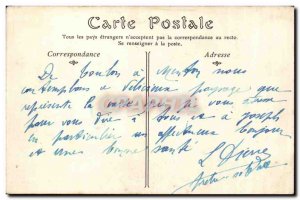 Carte Postale
Tous les pays étrangers n'acceptent pas la correspondance au recto.
Se renseigner à la poste.
Correspondance
Adresse
De Toulon à Menton nous
contemplons délicieux paysage que
représente la
pour vous dire à tous et à Joseph
en particulier un affectueux bonjour
et une bonne santé
L Pierre